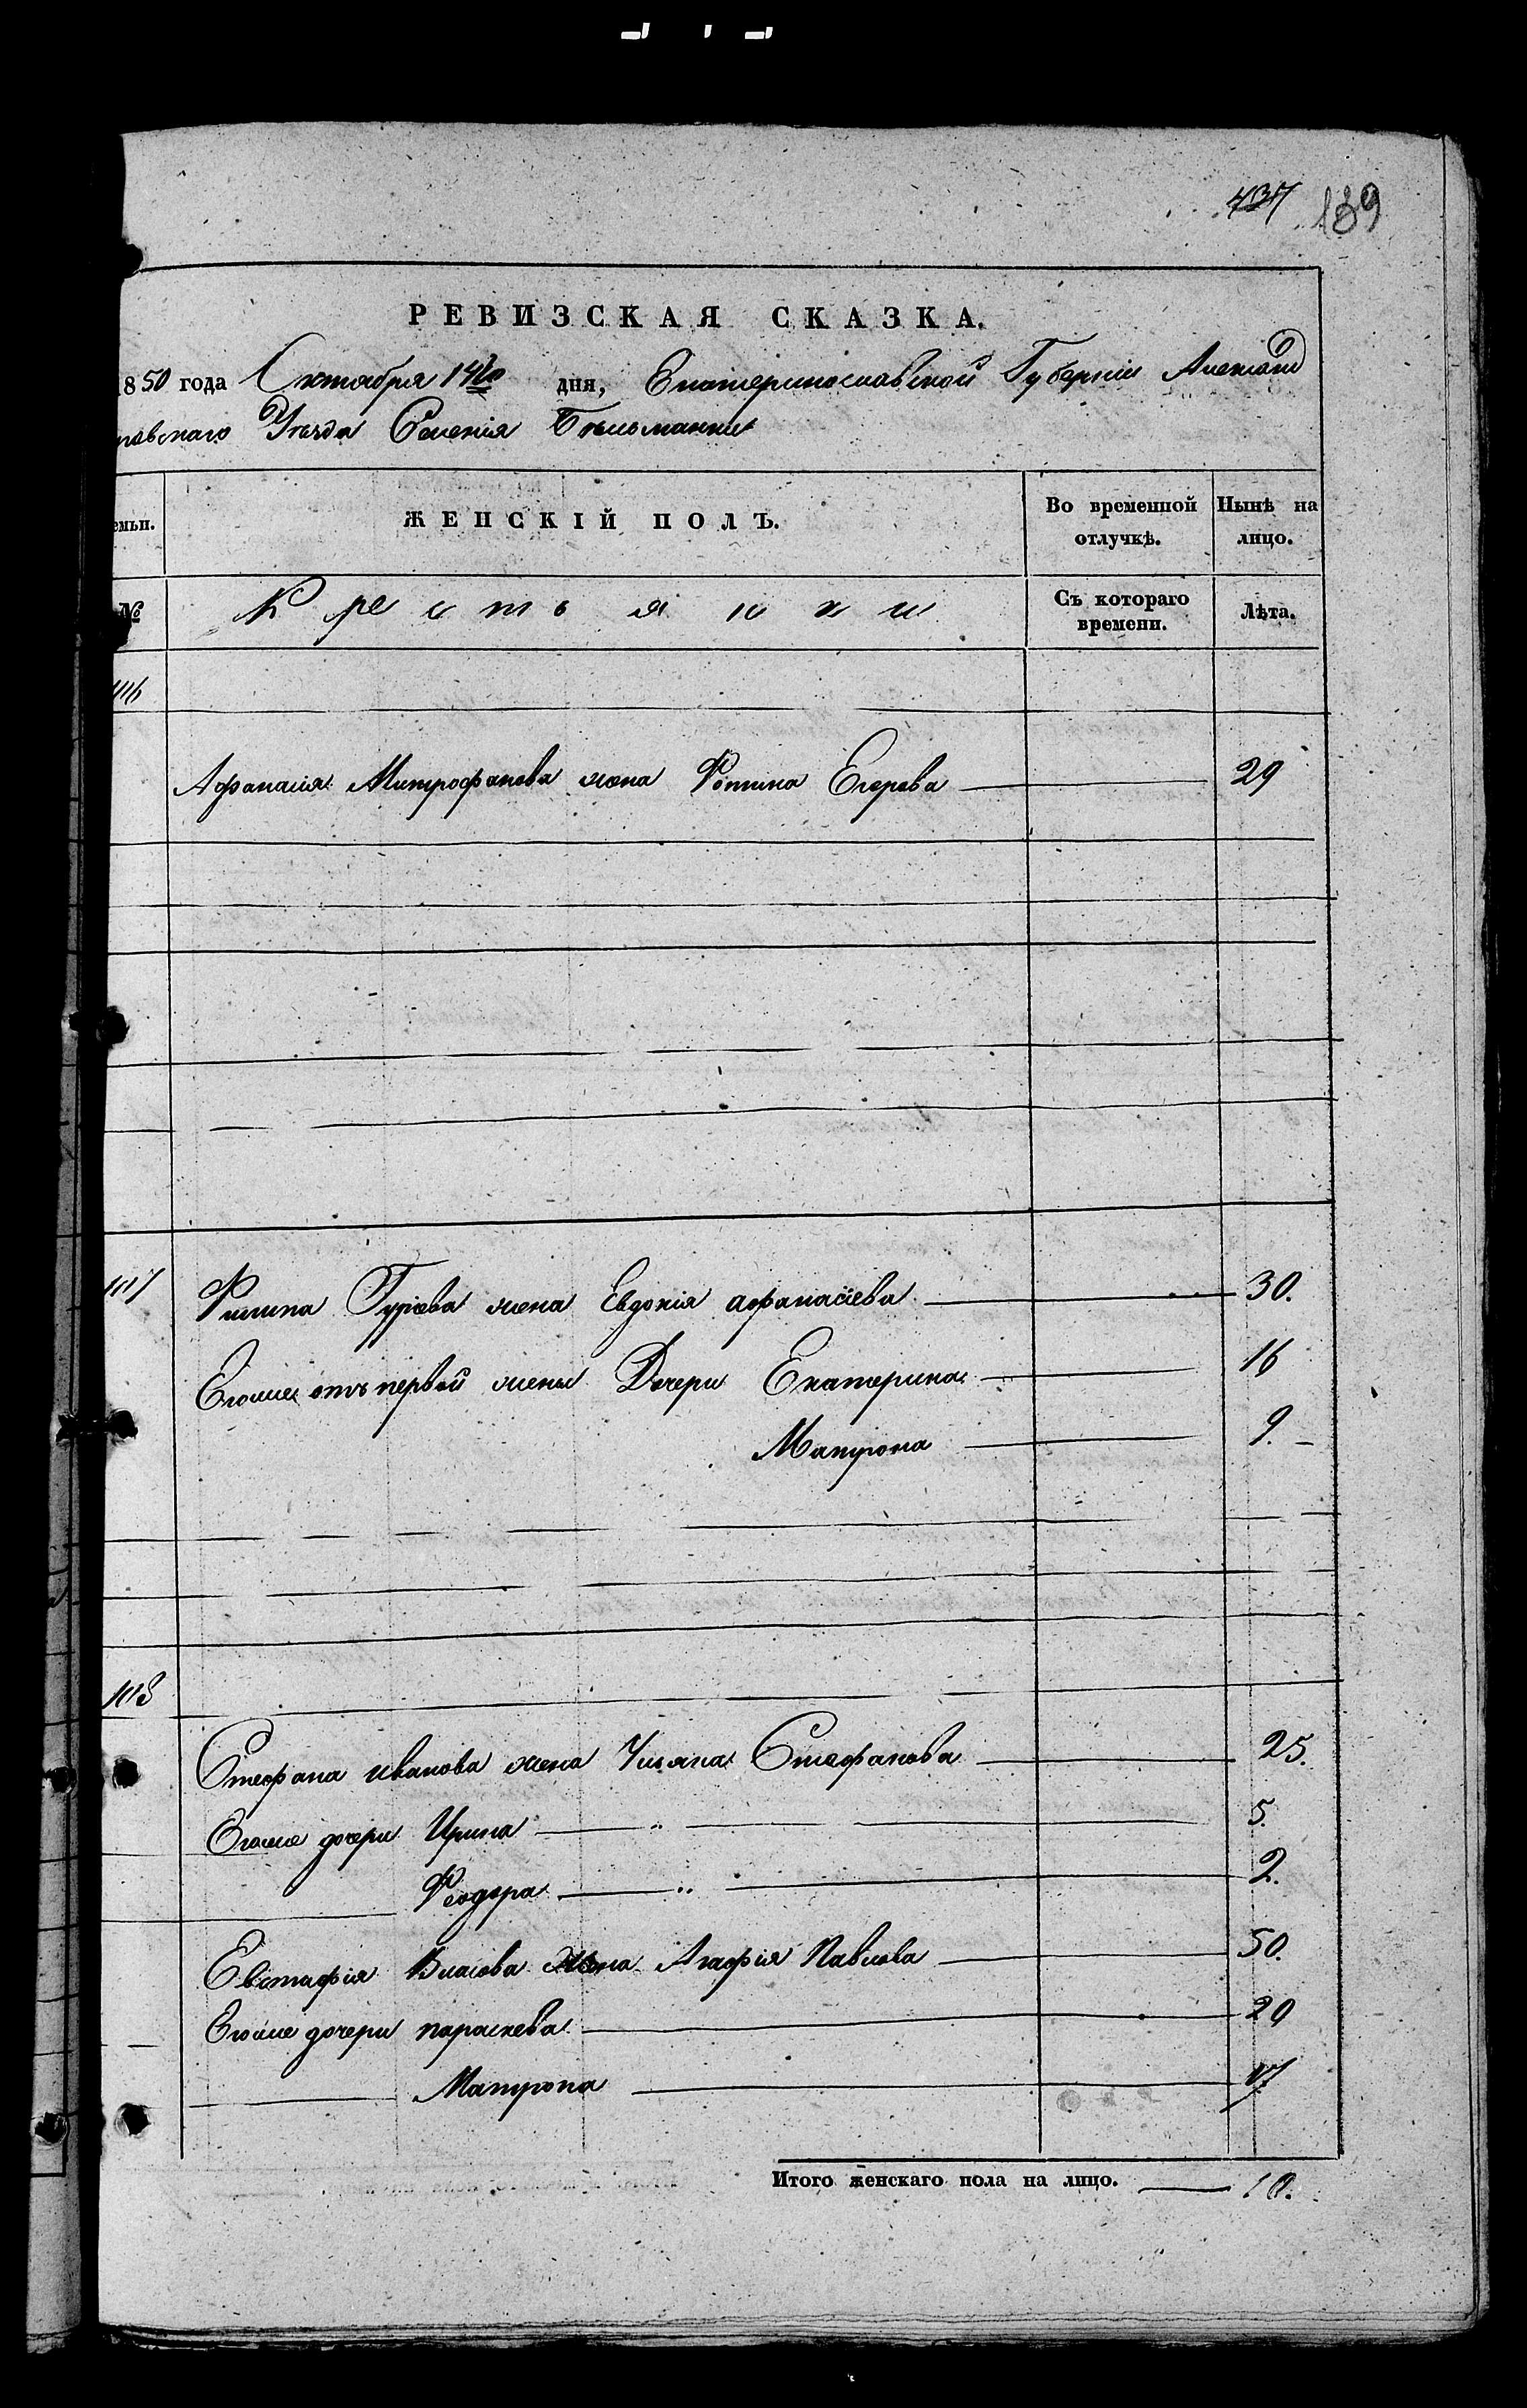 737 139
РЕВИЗСКАЯ СКАЗКА.
1850 года Октября 14го дня, Екатеринославской Губерніи Александ
ровскаго Уезда Селенія Бѣльманки
емьи. ЖЕНСКІЙ ПОЛЪ. Во временной отлучкѣ. Нынѣ на лицо.
№ Крестьянки Съ котораго времени. Лѣта.
Афанасія Митрофанова жена Фотина Егорова 29
Филипа Гуріева жена Евдокія афанасіева 30.
Егоже отъ первой жены Дочери Екатерина 16
Матрона 9.
Стефана иванова жена Ульяна Стефанова 25.
Егоже дочери Ирина 5.
Феодора 2.
Евстафія Власова жена Агафія Павлова 50.
Егоже дочери параскева 20
Матрона 17
Итого женскаго пола на лицо. 10.